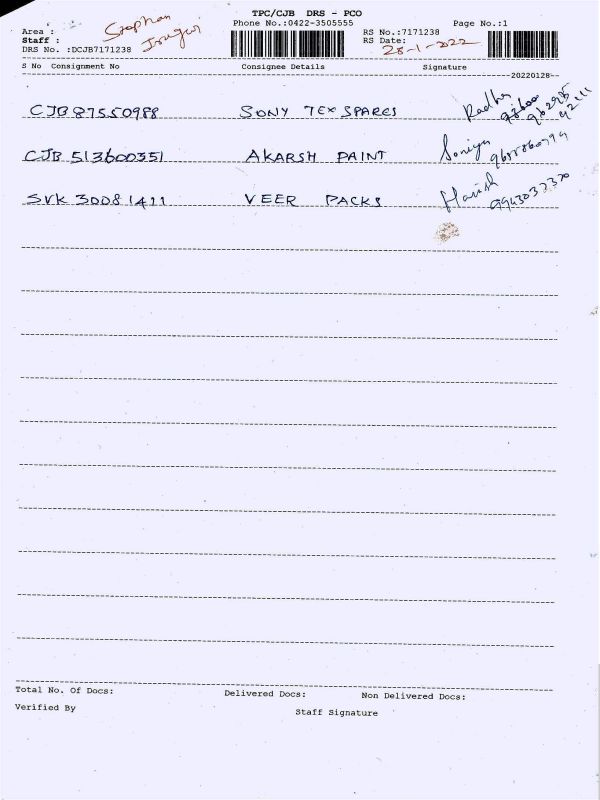 TPC/CJB DRS - PCO
Phone No.:0422-3505555 Page No.:1
Area : Stephan
Staff :
DRS No. :DCJB7171238
RS No.:7171238
RS Date: 28-1-2022
S No Consignment No Consignee Details Signature
20220128
CJB 87550988 SONY TEX SPARES Radha
CJB 513600351 AKARSH PAINT Soniya
SVK 30081411 VEER PACKS Harish 9943037320
Total No. Of Docs: Delivered Docs: Non Delivered Docs:
Verified By Staff Signature